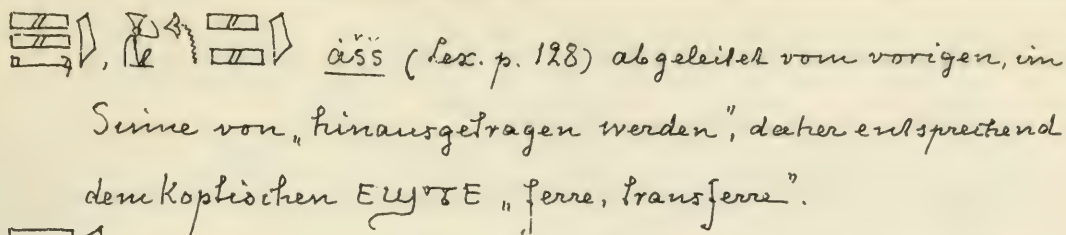 äšš (Lex. p. 128) abgeleitet vom vorigen, im
Sinne von „hinausgetragen werden", daher entsprechend
dem Koptischen ⲉϣⲧⲉ „ferre, transferre".